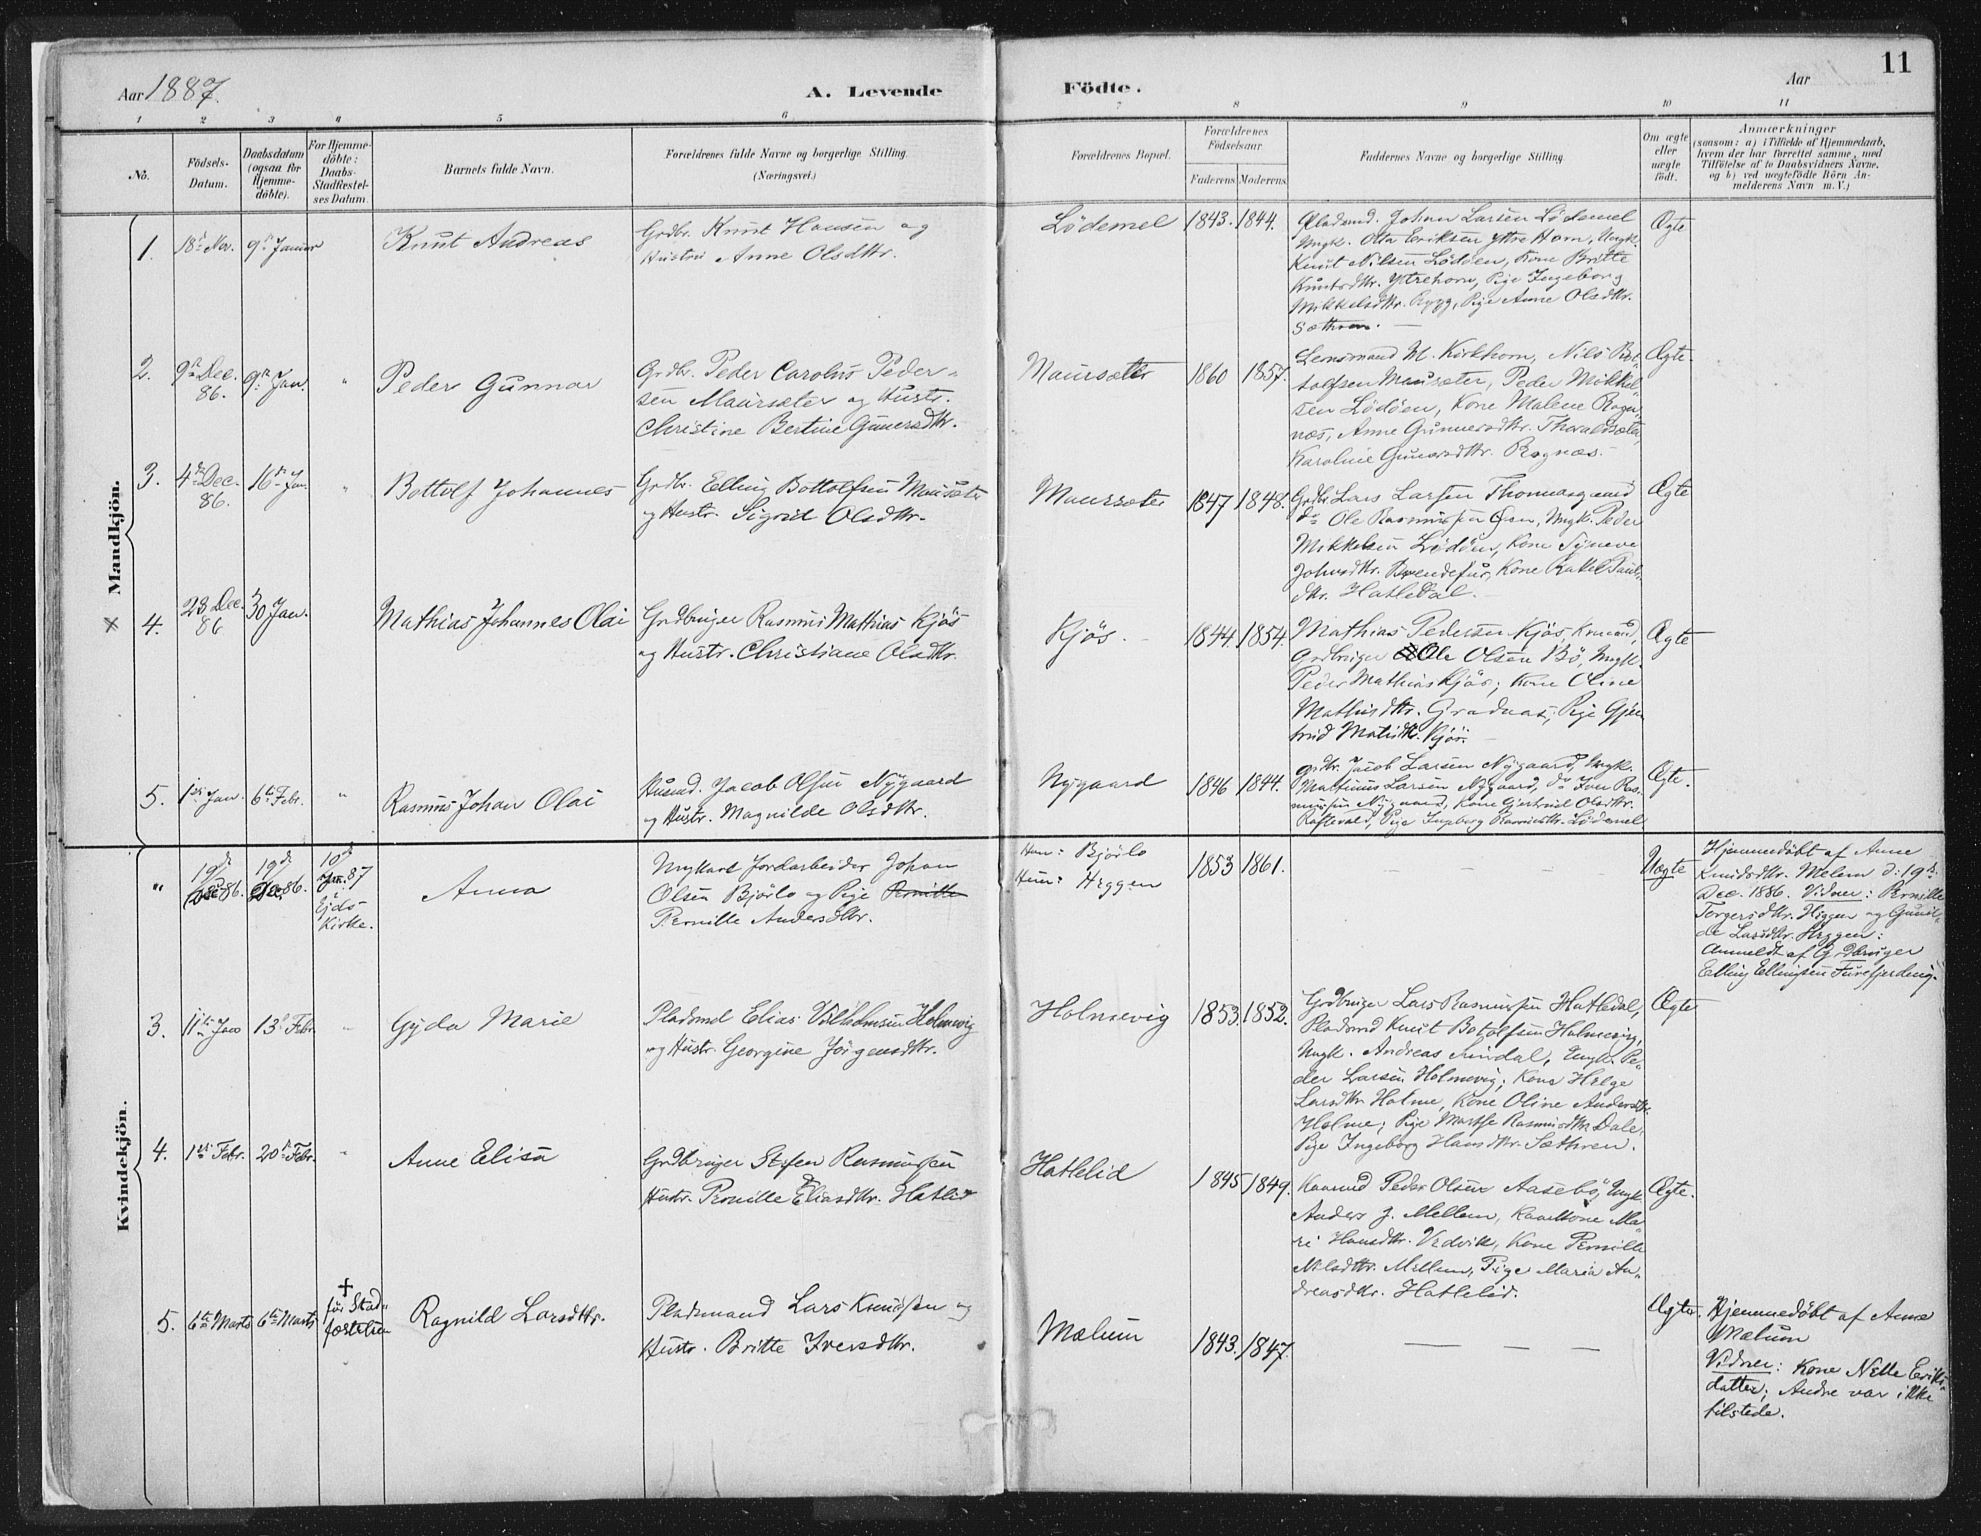 Aar 1887.
A. Levende
Födte.
Aar
11
1 2 3 4 5 6 7 8 9 10 11
No.
Födsels-
Datum.
Daabsdatum
(ogsaa for
Hjemme-
döbte).
For Hjemme-
döbte:
Daabs-
Stadfæstel-
ses Datum.
Barnets fulde Navn.
Forældrenes fulde Navne og borgerlige Stilling.
(Næringsvei.)
Forældrenes Bopæl.
Forældrenes
Födselsaar.
Faderens. Moderens.
Faddernes Navne og borgerlige Stilling.
Om ægte
eller
uægte
födt.
Anmærkninger
(saasom: a) i Tilfælde af Hjemmedaab,
hvem der har forrettet samme, med
Tilföielse af to Daabsvidners Navne,
og b) ved uægtefödte Börn An-
melderens Navn m. V.)
Mandkjön.
1. 18de Nov. 9de Januar Knut Andreas
Grdbr. Knut Hansen og
Hustru Anne Olsdtr.
Lödemel 1843. 1844.
Pladsmd. Johan Larsen Lödemel
Ungk. Otto Eriksen Ytre Horn, Ungk.
Knut Nilsen Lödöen, Kone Britte
Knutsdtr. Ytrehorn, Pige Ingeborg
Mikkelsdtr. Rygg, Pige Anne Olsdtr.
Sæthren. —
Ægte
2. 9de Dec. 86. 9de Jan. " Peder Gunnar
Grdbr. Peder Carolus Peder-
sen Maursæter og Hustr.
Christine Bertine Gunersdtr.
Maursæter 1860 1857.
Lensmand M. Kirkhorn, Nils Bot-
tolfsen Maursæter, Peder Mikkel-
sen Lödöen, Kone Malene Rogn-
næs, Anne Gunnersdtr. Thoraldsæter,
Karoline Gunersdtr. Rognæs. —
Ægte.
3. 4de Dec. 86. 16de Jan. " Bottolf Johannes
Grdbr. Elling Bottolfsen Maursæter
og Hustr. Sigrid Olsdtr.
Maursæter 1847 1848.
Grdbr. Lars Larsen Thomasgaard
do Ole Rasmussen Öen, Ungk. Peder
Mikkelsen Lödöen, Kone Syneve
Johnsdtr. Brendefur, Kone Rakel Pauls-
dtr. Hatledal. —
Ægte
× 4. 23 Dec. 86 30 Jan. Mathias Johannes Olai
Grdbruger Rasmus Matthias Kjös
og Hustr. Christiane Olsdtr.
Kjös. — 1844. 1854.
Mathias Pedersen Kjös, Kaarmd,
Grdbruger Ole Olsen Bö, Ungk.
Peder Mathias Kjös; Kone Oline
Mathisdtr. Gradnæs; Pige Gjer-
trud Mathsdtr. Kjös. —
Ægte
5. 1ste Jan. 6te Febr. " Rasmus Johan Olai
Husmd. Jacob Olsen Nygaard
og Hustr. Magnilde Olsdtr.
Nygaard 1846 1844.
Grdbr. Jacob Larsen Nygaard, Ungk.
Mathinus Larsen Nygaard, do Iver Ras-
mussen Nygaard, Kone Gjertrud Olsdtr.
Raftevold, Pige Ingeborg Rasmusdtr. Lödemel
Ægte.
Kvindekjön.
" 19de Dec 86. 19de Dec. 86. 10de Jan. 87 Ejds Kirke. Anna
Ungkarl Jordarbeider Johan
Olsen Bjørlo og Pige Pernille
Pernille Andersdtr.
Han: Bjørlo
Hun: Heggen
1853 1861. — — — —
Uægte
Hjemmedöbt af Anne
Knudsdtr. Melum d: 19de
Dec. 1886. Vidner: Pernille
Torgersdtr. Heggen og Gunil-
de Larsdtr. Heggen:
Anmeldt af Grdbruger
Elling Ellingsen Furefjerding.
3. 11te Jan 13de Febr. " Gyda Marie
Pladsmd Elias Vilhelmsen Holmevig
og Hustr. Georgine Jörgensdtr.
Holmevig 1853. 1852.
Grdbruger Lars Rasmussen Hatledal,
Pladsmd Knut Botolfsen Holmevig,
Ungk. Andreas Sundal, Ungk. Pe-
der Larsen Holmevig; Kone Helge
Larsdtr Holme, Kone Oline Andersdtr.
Holme; Pige Marthe Rasmusdtr Dale,
Pige Ingeborg Hansdtr. Sæthren.
Ægte
4. 1ste Febr. 20de Febr. " Anne Elisa
Grdbruger Stefen Rasmussen
Hustr. Pernille Eliasdtr. Hatlid
Hatlelid 1845 1849.
Kaarmd Peder Olsen Aasebö, Ungk.
Anders J. Mellem, Kaarkone Ma-
ri Hansdtr. Vedvik, Kone Pernille
Nilsdtr. Mellem, Pige Maria An-
dreasdtr. Hatlelid.
Ægte.
5. 6te Marts 6te Marts † för Stad- fæstelsen Ragnild Larsdtr.
Pladsmand Lars Knudsen og
Hustr. Britte Iversdtr.
Mælum 1843. 1847. — — —
Ægte.
Hjemmedöbt af Anne
Mælum
Vidner: Kone Nille Eriks-
datter; Andre var ikke
tilstede.